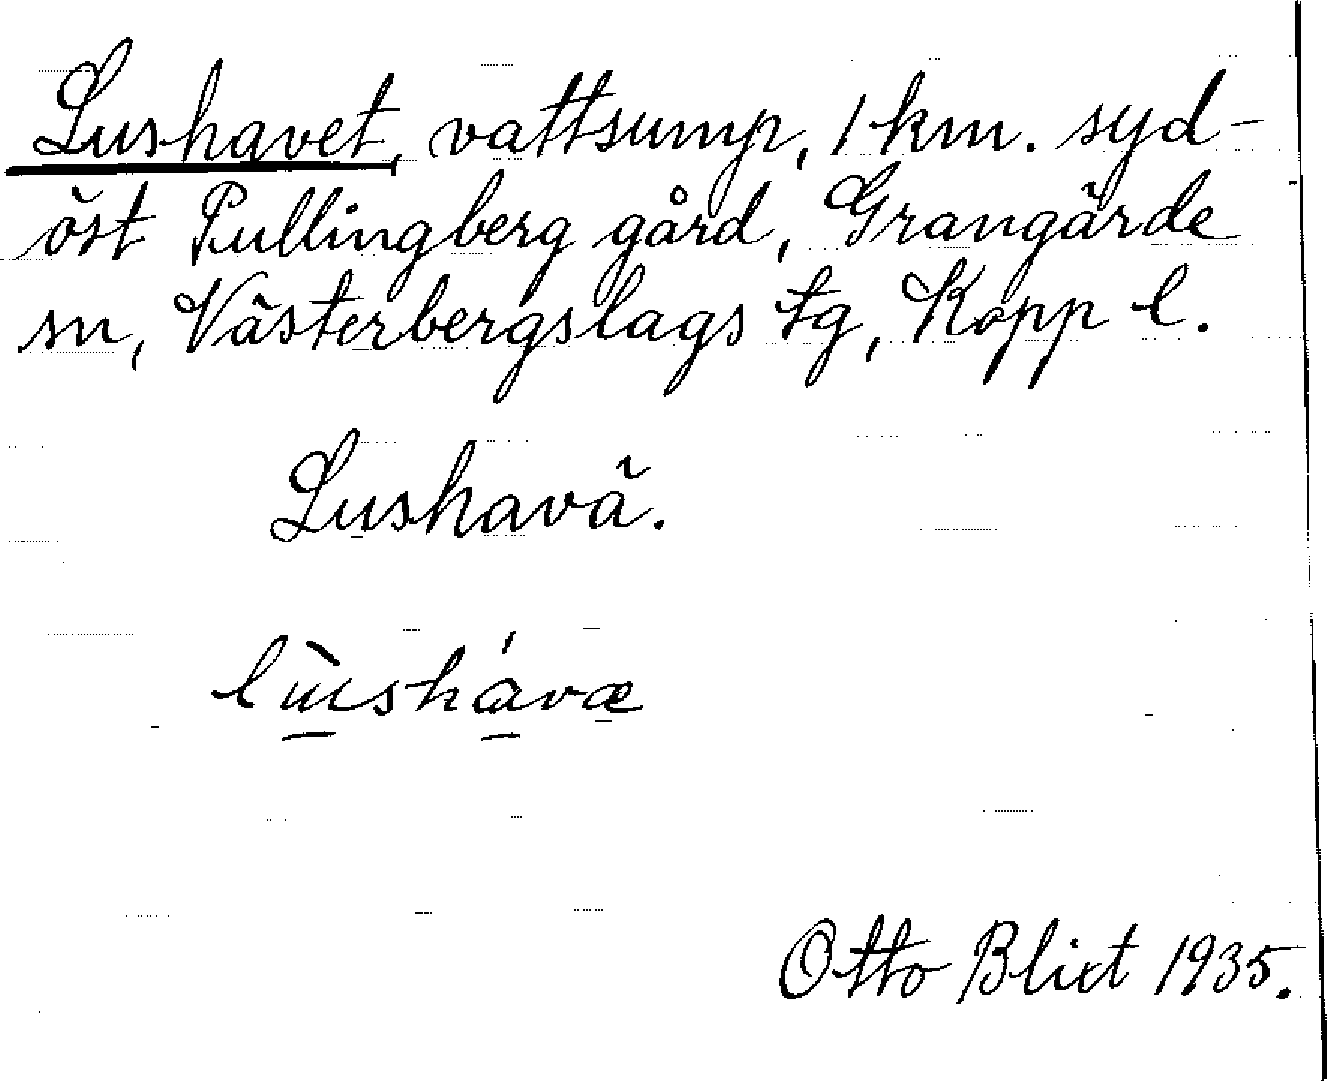 Lushavet, vattsump, 1 km. syd-
öst Pullingberg gård, Grangärde
sn, Västerbergslags tg, Kopp l.
Lushavä.
lùshávæ
Otto Blixt 1935.